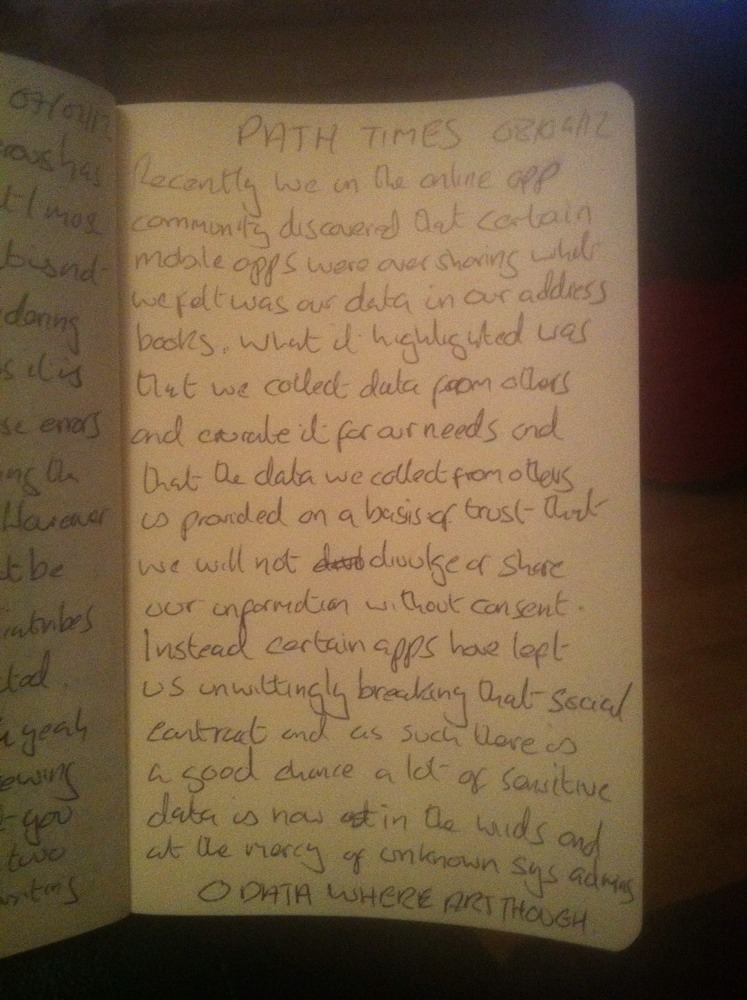 07/02/12
has
t I most
bisnd-
doning
s it is
se errors
ing the
However
t be
tribes
tad.
yeah
ewing
t you
two
writing
PATH TIMES 08/02/12
Recently we in the online app
community discovered that certain
mobile apps were over sharing what
we felt was our data in our address
books. What it highlighted was
that we collect data from others
and curate it for our needs and
that the data we collect from others
is provided on a basis of trust that
we will not divulge or share
our information without consent.
Instead certain apps have left
us unwittingly breaking that social
contract and as such there is
a good chance a lot of sensitive
data is now in the wilds and
at the mercy of unknown sys admins
O DATA WHERE ART THOUGH